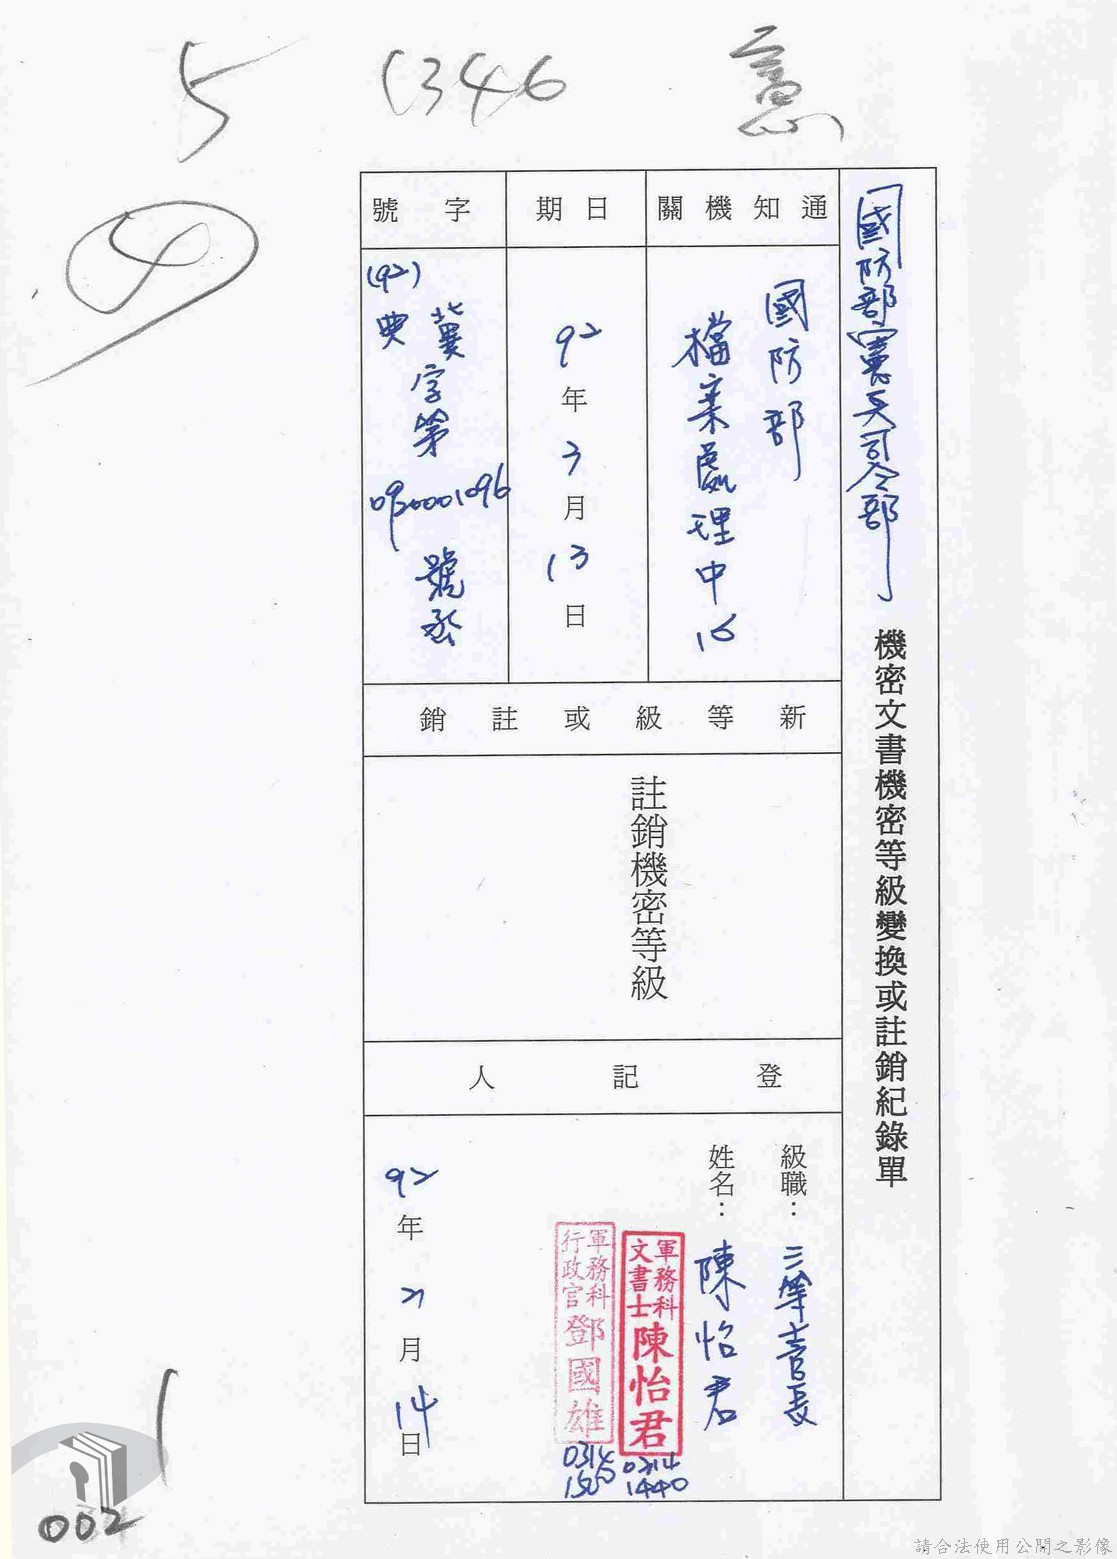 5
1346
憲
國防部憲兵司令部
機密文書機密等級變換或註銷紀錄單
通知機關
國防部
檔案處理中心
日期
92年3月13日
字號
(92)
典冀字第
0920001096
號函
新等級或註銷
註銷機密等級
登記人
級職：三等士官長
姓名：陳怡君
軍務科
文書士陳怡君
0314
1440
軍務科
行政官鄧國雄
0314
1500
92年3月14日
1
002
請合法使用公開之影像